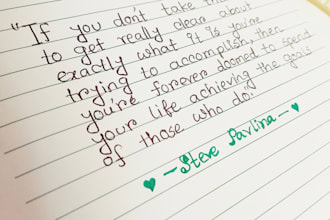 "If you don't take the
to get really clear about
exactly what it is you're
trying to accomplish, then
you're forever doomed to spend
your life achieving the goals
of those who do."
— Steve Pavlina —